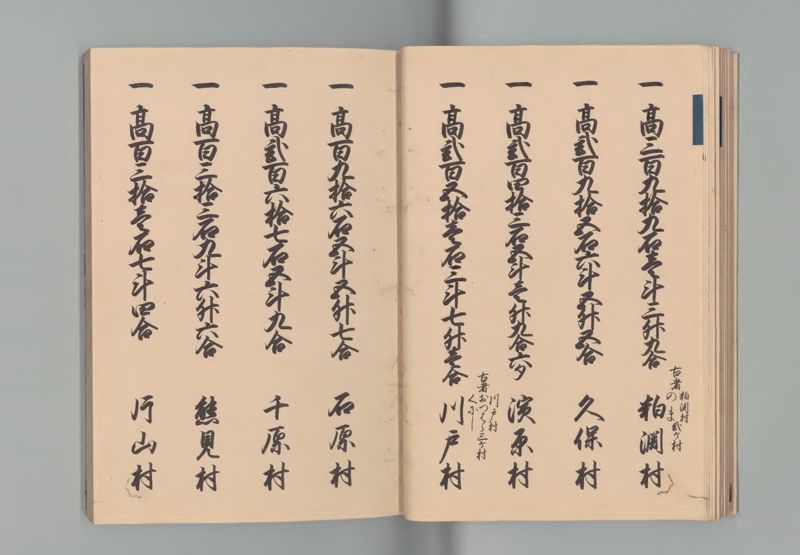 一 高三百九拾九石壱斗三升九合 粕渕村
古者 粕渕村 のま 弐ケ村
一 高弐百九拾五石六斗五升五合 久保村
一 高弐百四拾三石五斗壱升九合六夕 濱原村
一 高弐百五拾壱石三斗七升壱合 川戸村
古者 川戸村 三ケ村
一 高百九拾六石五斗五升七合 石原村
一 高弐百六拾七石五斗九合 千原村
一 高百三拾三石九斗六升六合 熊見村
一 高百三拾壱石七斗四合 片山村